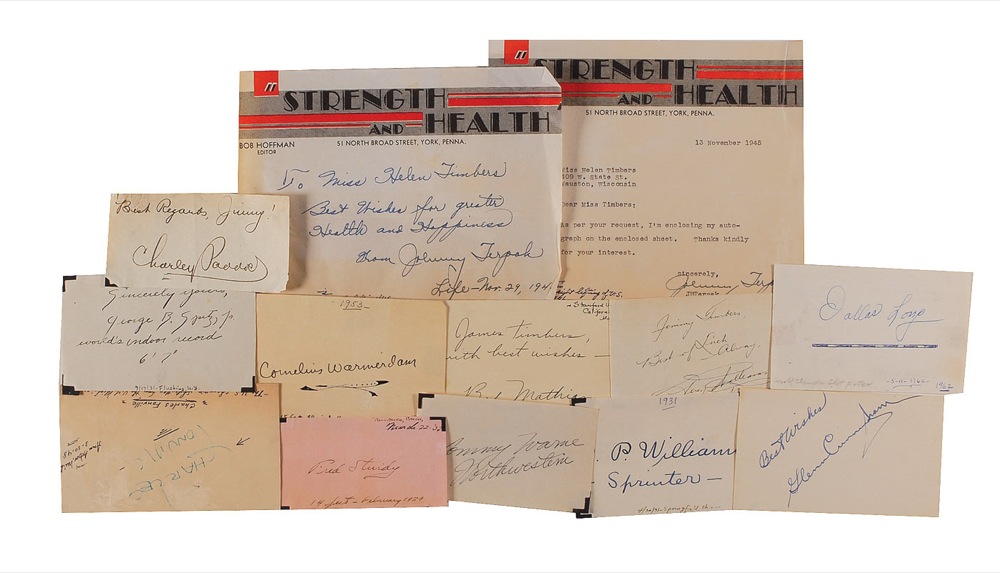 STRENGTH
AND HEALTH
51 NORTH BROAD STREET, YORK, PENNA.
13 November 1945
Miss Helen Timbers
409 W. State St.
Mauston, Wisconsin
Dear Miss Timbers:
As per your request, I'm enclosing my auto-
graph on the enclosed sheet. Thanks kindly
for your interest.
Sincerely,
Johnny Terp
STRENGTH
AND HEALTH
BOB HOFFMAN
EDITOR
51 NORTH BROAD STREET, YORK, PENNA.
To Miss Helen Timbers
Best Wishes for greater
Health and Happiness
from Johnny Terpak
Life-Nov. 29, 194
Best Regards, Jimmy!
Charley Paddock
Sincerely yours,
George B. Spitz, Jr.
world's indoor record
6' 7"
1953-
Cornelius Warmerdam
Stanford
James Timbers,
with best wishes -
Bob Mathias
Jimmy Timbers,
Best of Luck
Always.
Dallas Long
-5-11-1962
1962
Charles Fonville
CHARLES
FONVILLE
March 22-3
Fred Sturdy
14 feet - February 1929
Tommy Warne
Northwestern
1931
P. William
Sprinter -
Best Wishes
Glenn Cunningham